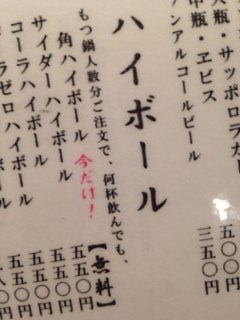 瓶・サッポロラガ
中瓶・ヱビス
ンアルコールビール
五〇〇円
三五〇円
ハイボール
もつ鍋人数分ご注文で、何杯飲んでも、
【無料】
角ハイボール
今だけ!
五五〇円
サイダーハイボール
五五〇円
コーラハイボール
五五〇円
ラゼロハイボール